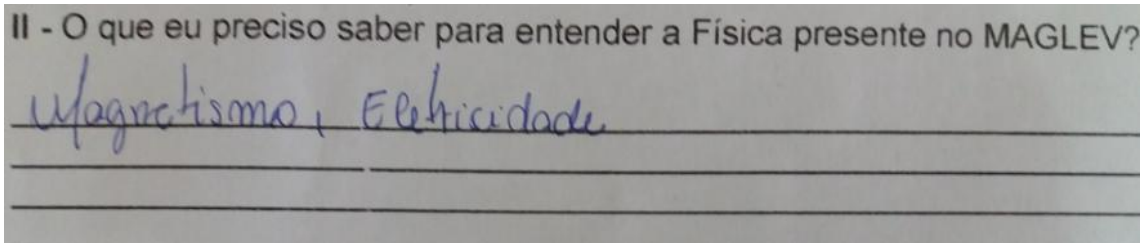 II - O que eu preciso saber para entender a Física presente no MAGLEV?
Magnetismo, Eletricidade